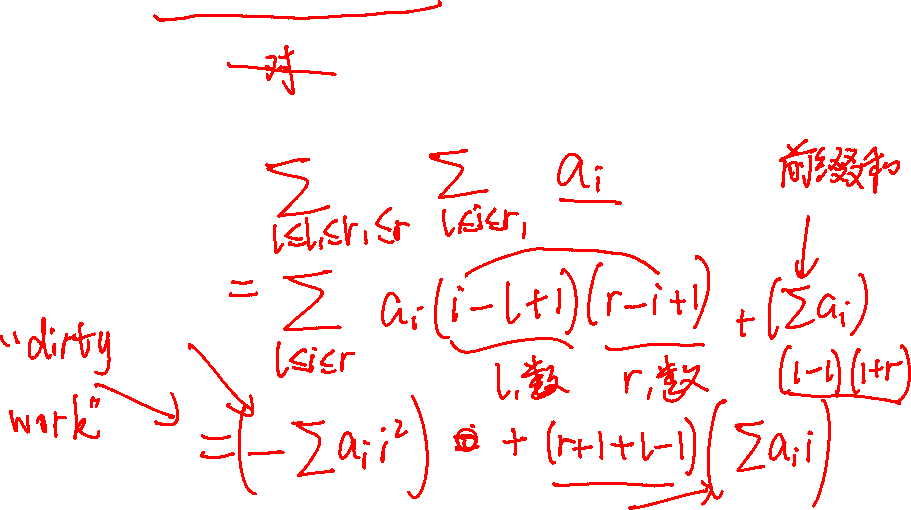 对
前缀和
∑_{l≤l₁≤r₁≤r} ∑_{l≤i≤r₁} a_i
= ∑_{l≤i≤r} a_i (i-l+1)(r-i+1) + (∑a_i)
l₁数 r₁数 (1-l)(1+r)
"dirty work"
= (-∑a_i i²) + (r+1+l-1)(∑a_i i)